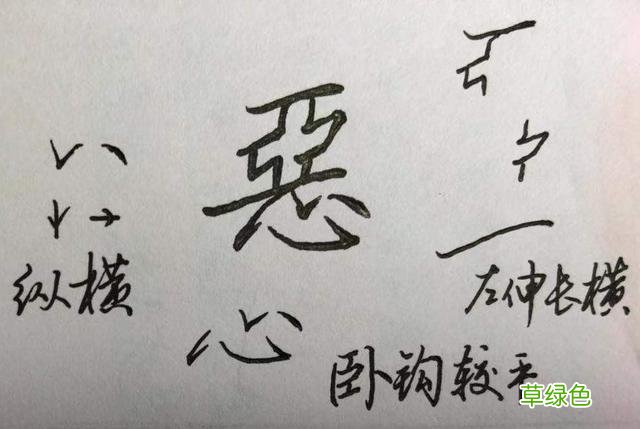 惡
纵横
左伸长横
心
卧钩较平
草绿色